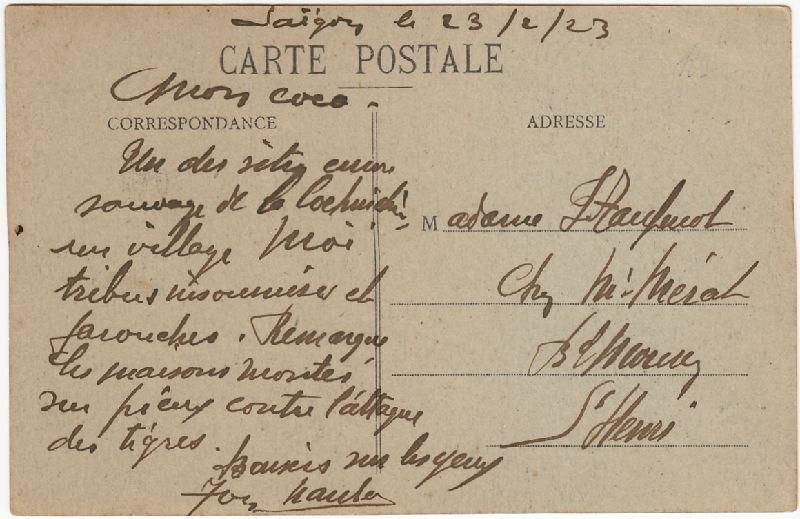 Saïgon le 23/2/23
CARTE POSTALE
Mon coco.
CORRESPONDANCE
ADRESSE
Un des sites encore
sauvage de la Cochinchine
un village Moï
tribus insoumises et
farouches. Remarque
les maisons montées
sur pieux contre l'attaque
des tigres.
Baisers sur les yeux
Ton
Madame
Chez Mr Mérat
St Henri